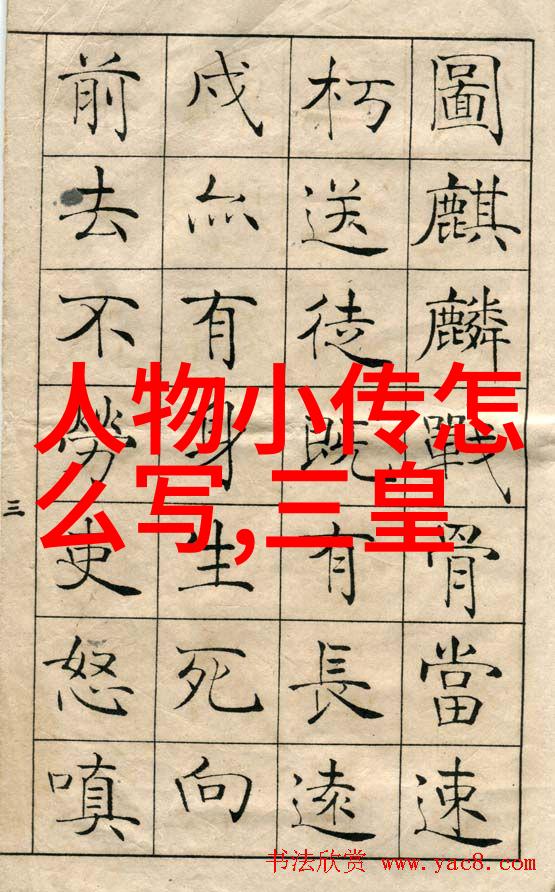 圖麒麟戰骨當速
朽送徒既有長遠
戍亦有身生死向
前去不勞吏怒嗔
三
人物小传怎
么写,三皇
书法欣赏 www.yac8.com